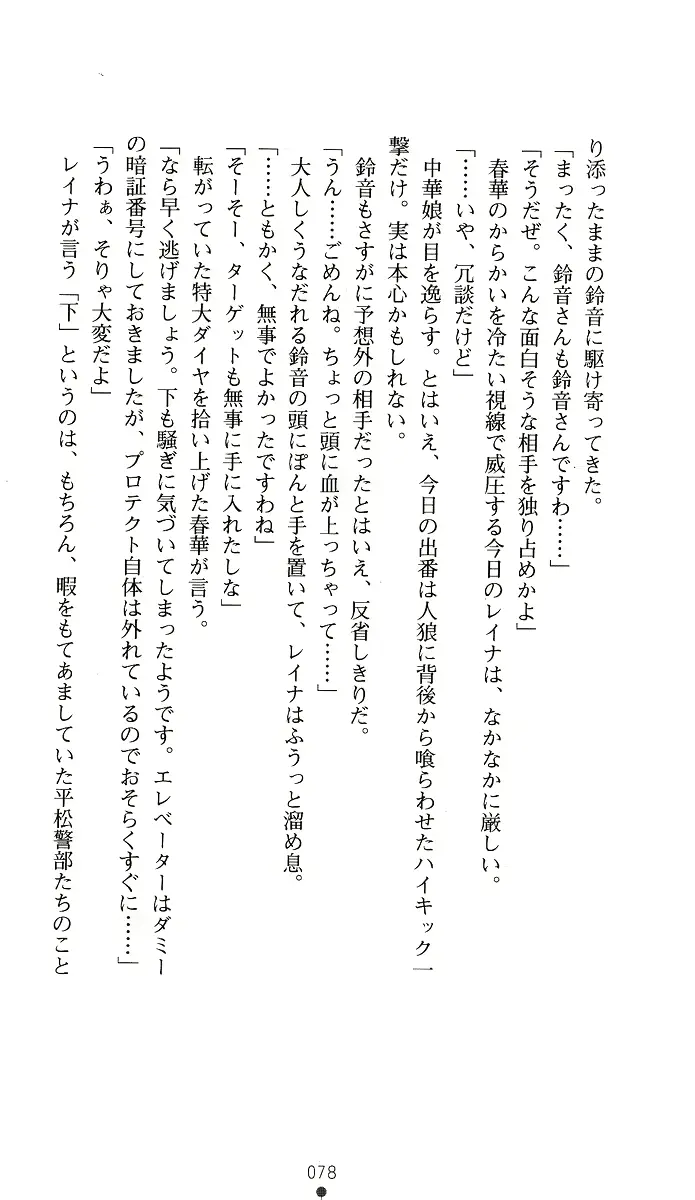 り添ったままの鈴音に駆け寄ってきた。
「まったく、鈴音さんも鈴音さんですわ……」
「そうだぜ。こんな面白そうな相手を独り占めかよ」
春華のからかいを冷たい視線で威圧する今日のレイナは、なかなかに厳しい。
「……いや、冗談だけど」
中華娘が目を逸らす。とはいえ、今日の出番は人狼に背後から喰らわせたハイキック一
撃だけ。実は本心かもしれない。
鈴音もさすがに予想外の相手だったとはいえ、反省しきりだ。
「うん……ごめんね。ちょっと頭に血が上っちゃって……」
大人しくうなだれる鈴音の頭にぽんと手を置いて、レイナはふうっと溜め息。
「……ともかく、無事でよかったですわね」
「そーそー、ターゲットも無事に手に入れたしな」
転がっていた特大ダイヤを拾い上げた春華が言う。
「なら早く逃げましょう。下も騒ぎに気づいてしまったようです。エレベーターはダミー
の暗証番号にしておきましたが、プロテクト自体は外れているのでおそらくすぐに……」
「うわぁ、そりゃ大変だよ」
レイナが言う「下」というのは、もちろん、暇をもてあましていた平松警部たちのこと
078